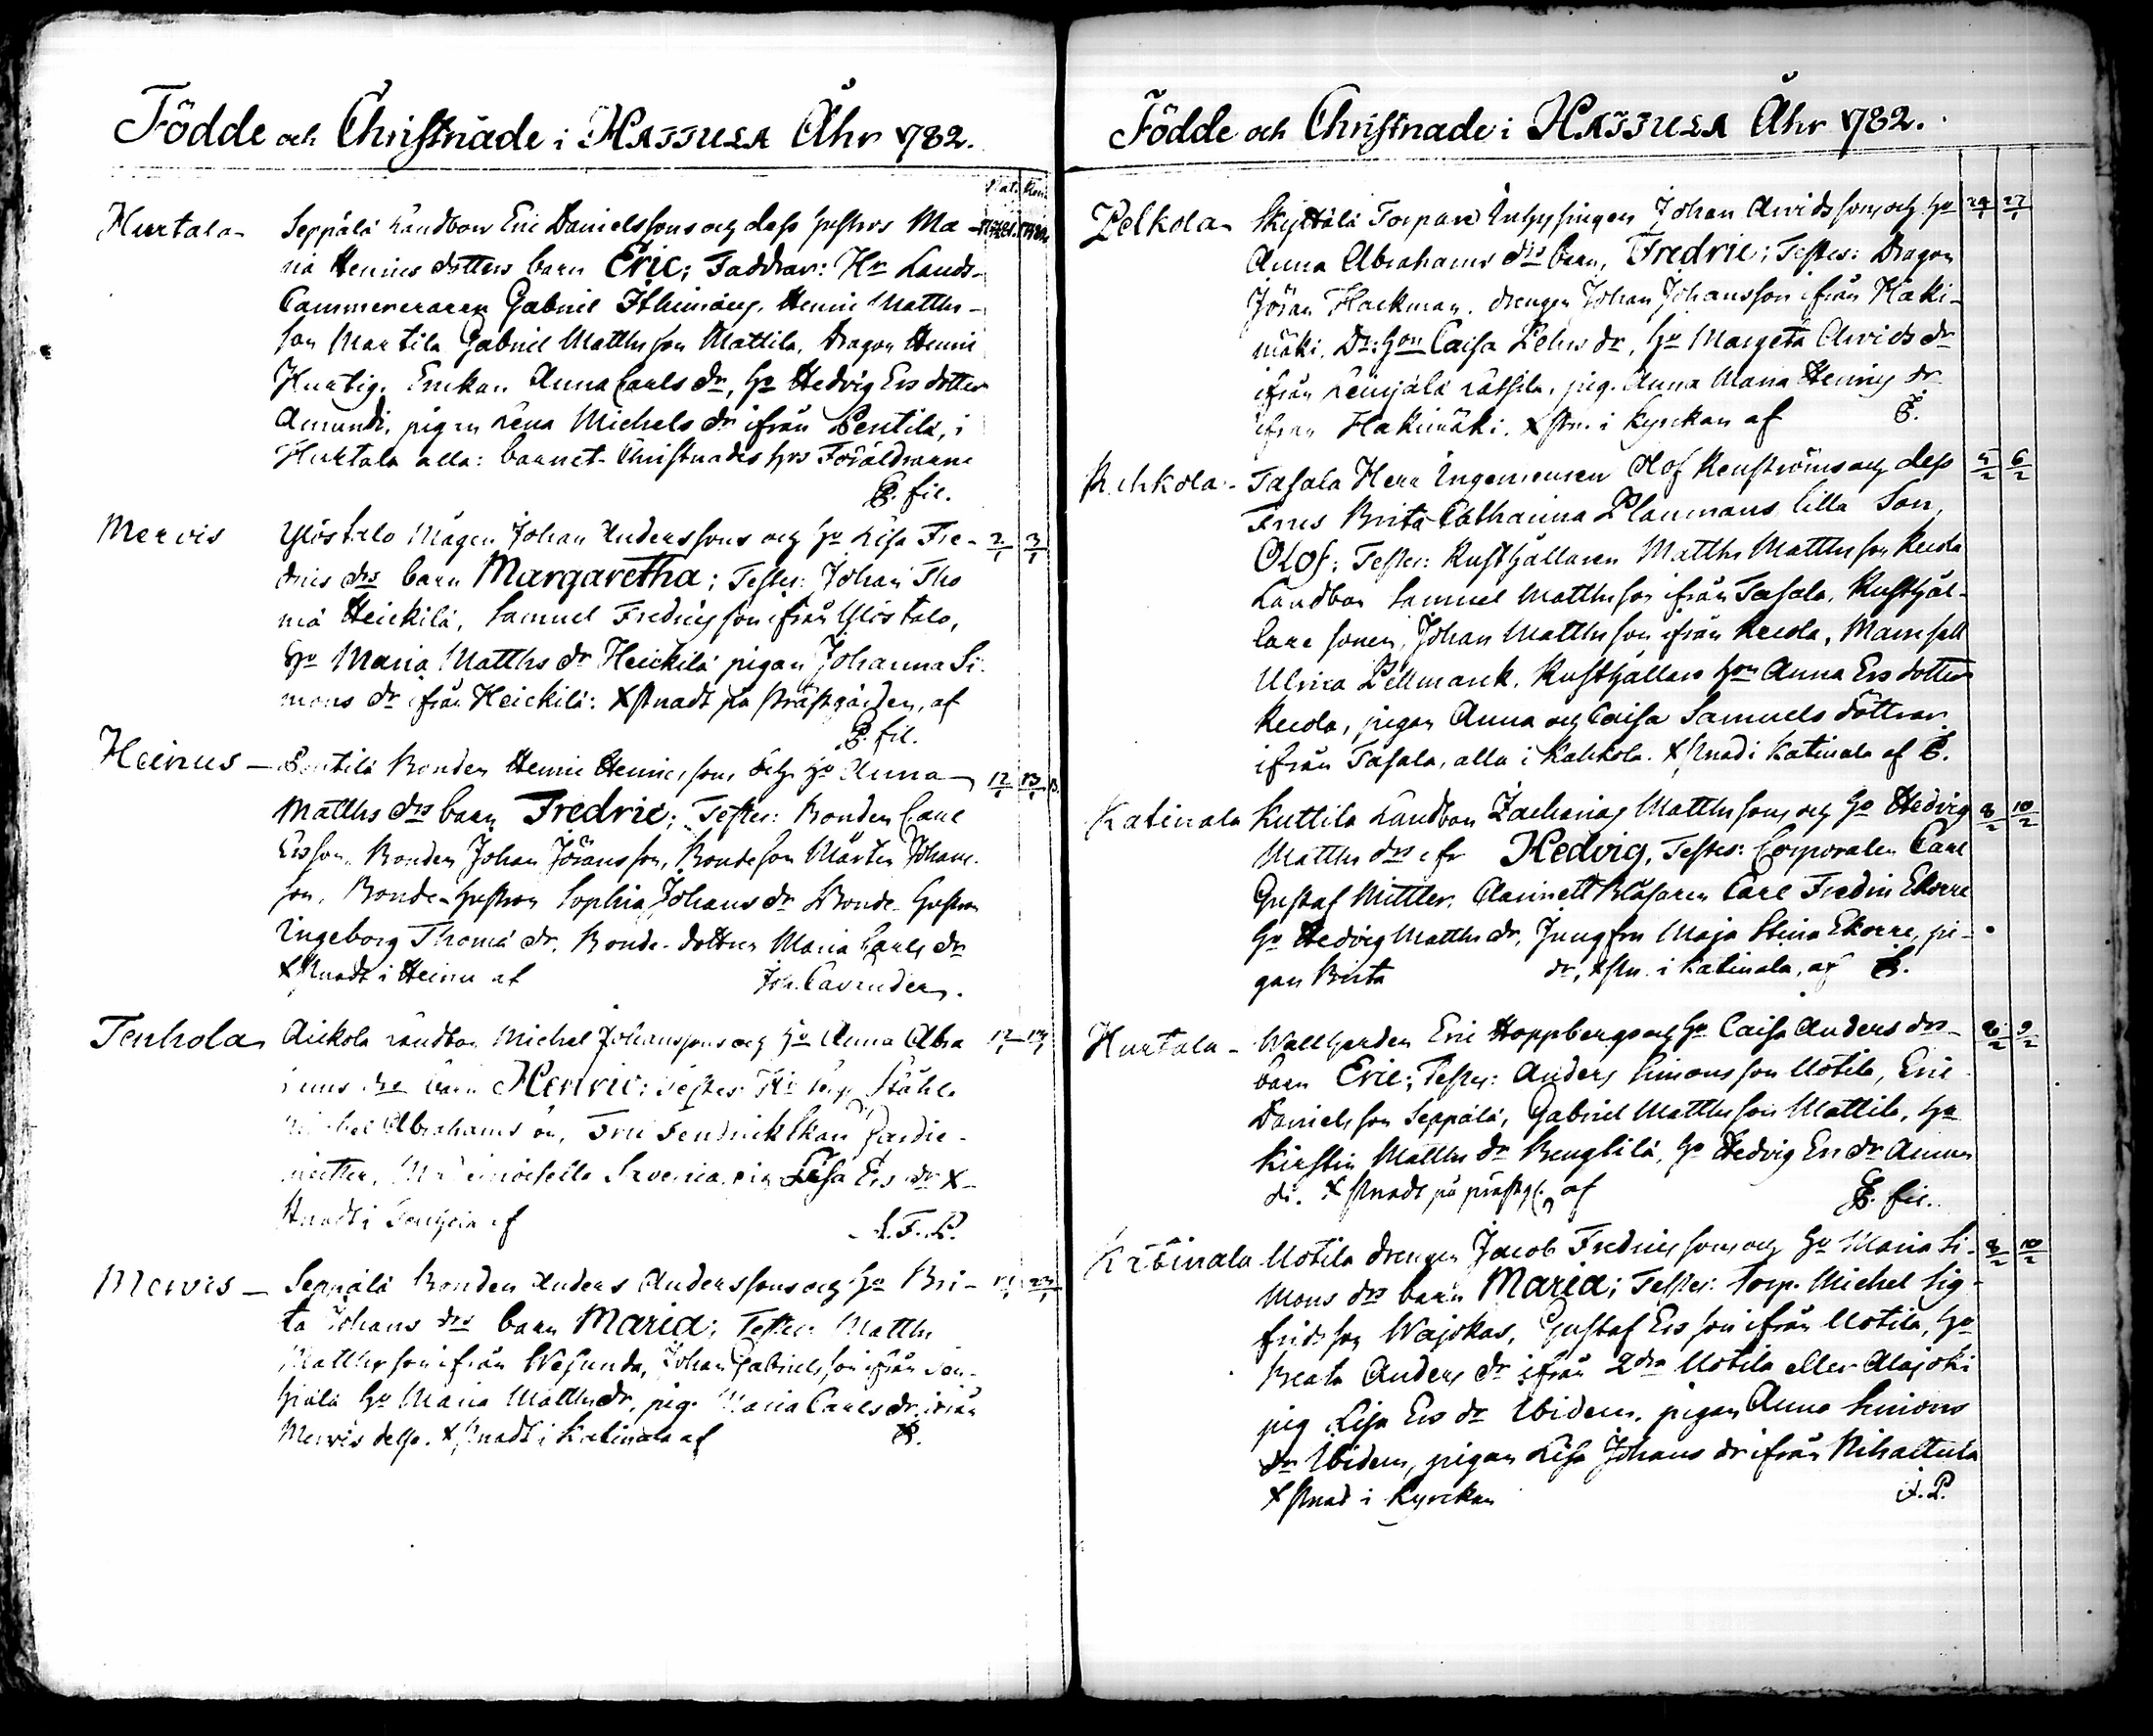 Födde och Christnade i HATTULA Åhr 1782.
Nat. Ren.
Hurtala - Seppälä Landbon Eric Danielssons och dess hustrus Ma-
ria Henrics dotters barn Eric; Faddrar: Hr Lands-
Cammereraren Gabriel Henric Matths-
son Martila Gabriel Matthsson Mattila, Dragon Henric
Hurtig, Enckan Anna Carls dr, ho Hedvig Ers dotter
Amundi, pigan Lena Michels dr ifrån Pentilä, i
Hurtala alla: barnet Christnades hos Föräldrarne
P. fil.
Mervis Ylöstalo Mågen Johan Anderssons och ho Lisa Fre- 2/1 3/1
drics drs barn Margaretha; Testes: Johan Tho
mä Heickilä, Samuel Fredricsson ifrån Ylöstalo,
ho Maria Matths dr Heickilä pigan Johanna Si-
mons dr ifrån Heickilä: Xstnadt på Prästgården, af
P. fil.
Heinus - Pentilä Bonden Henric Henricssons och ho Anna 12/1 13/1
Matths drs barn Fredric; Testes: Bonden Carl
Ersson, Bonden Johan Jöransson, Bondeson Mårten Johans-
son, Bonde-hustron Sophia Johans dr Bonde-hustron
Ingeborg Thomä dr, Bonde-dottren Maria Carls dr
Xstnadt i Heinus af Joh. Cavander.
Tenhola Aickola Landbon Michel Johanssons och ho Anna Abra
hams drs barn Henric; Testes: Hr Ståhle
Michel Abrahamsson, Fru Fendrickskan Gardie-
meister, Mademoiselle pig. Lisa Ers dr X-
stnadt i Tenhola af
Mervis - Seppälä Bonden Anders Anderssons och ho Bri-
ta Johans drs barn Maria; Testes: Matths
Matthsson ifrån Wesunda, Johan Gabrielsson ifrån
ho Maria Matths dr, pig. Maria Carls dr ifrån
Mervis Xstnadt i Katinala af P.
Födde och Christnade i HATTULA Åhr 1782.
Pelkola Skyttälä Torpare Inhysingen Johan Arvidssons och ho 24/1 27/1
Anna Abrahams drs barn, Fredric; Testes: Dragon
Jöran Hackman, drengen Johan Johansson ifrån Haki-
mäki, Dr: hon Caisa Pehrs dr, ho Margeta Arvids dr
ifrån Leinjälä Lassila, pig. Anna Maria Henrics dr
ifrån Hakimäki. Xstn. i Kyrckan af P.
Rahkola - Tasala Herr Ingenieuren Olof Renströms och dess 5/2 6/2
Frus Brita Catharina Planmans lilla Son,
Olof; Testes: Rusthållaren Matths Matthsson Reola
Landbon Samuel Matthsson ifrån Tasala, Rusthål-
lare sonen, Johan Matthsson ifrån Reola, Mamsell
Ulrica Pellmarck, Rusthållare hon Anna Ers dotter
Reola, pigan Anna och Caisa Samuels döttrar
ifrån Tasala, alla i Rahkola. Xstnad i Katinala af P.
Katinala Kuttila Landbon Zacharias Matthssons och ho Hedvig 8/2 10/2
Matths drs Hedvig, Testes: Corporalen Carl
Gustaf Mittler, Clarinett Blåsaren Carl Fredric Ekorre
ho Hedvig Matths dr, Jungfru Maja Stina Ekorre, pi-
gan Brita dr, Xstn. i Katinala, af P.
Hurtala - Wallherden Eric Hoppbergs och ho Caisa Anders drs 8/2 9/2
barn Eric; Testes: Anders Simonsson Uotila, Eric
Danielsson Seppälä, Gabriel Matthsson Mattila, ho
Kirstin Matths dr Bengtilä, ho Hedvig Ers dr Amun
di. Xstnadt på prästg. af P. fil.
Katinala Uotila drengen Jacob Fredricssons och ho Maria Si- 9/2 10/2
mons drs barn Maria; Testes: Torp. Michel Sig-
fridsson Wajokas, Gustaf Ersson ifrån Uotila, ho
Beata Anders dr ifrån 2dra Uotila eller Alajoki
pig Lisa Ers dr Ibidem, pigan Anna Simons
dr Ibidem, pigan Lisa Johans dr ifrån Nihattula
Xstnad i Kyrckan P.